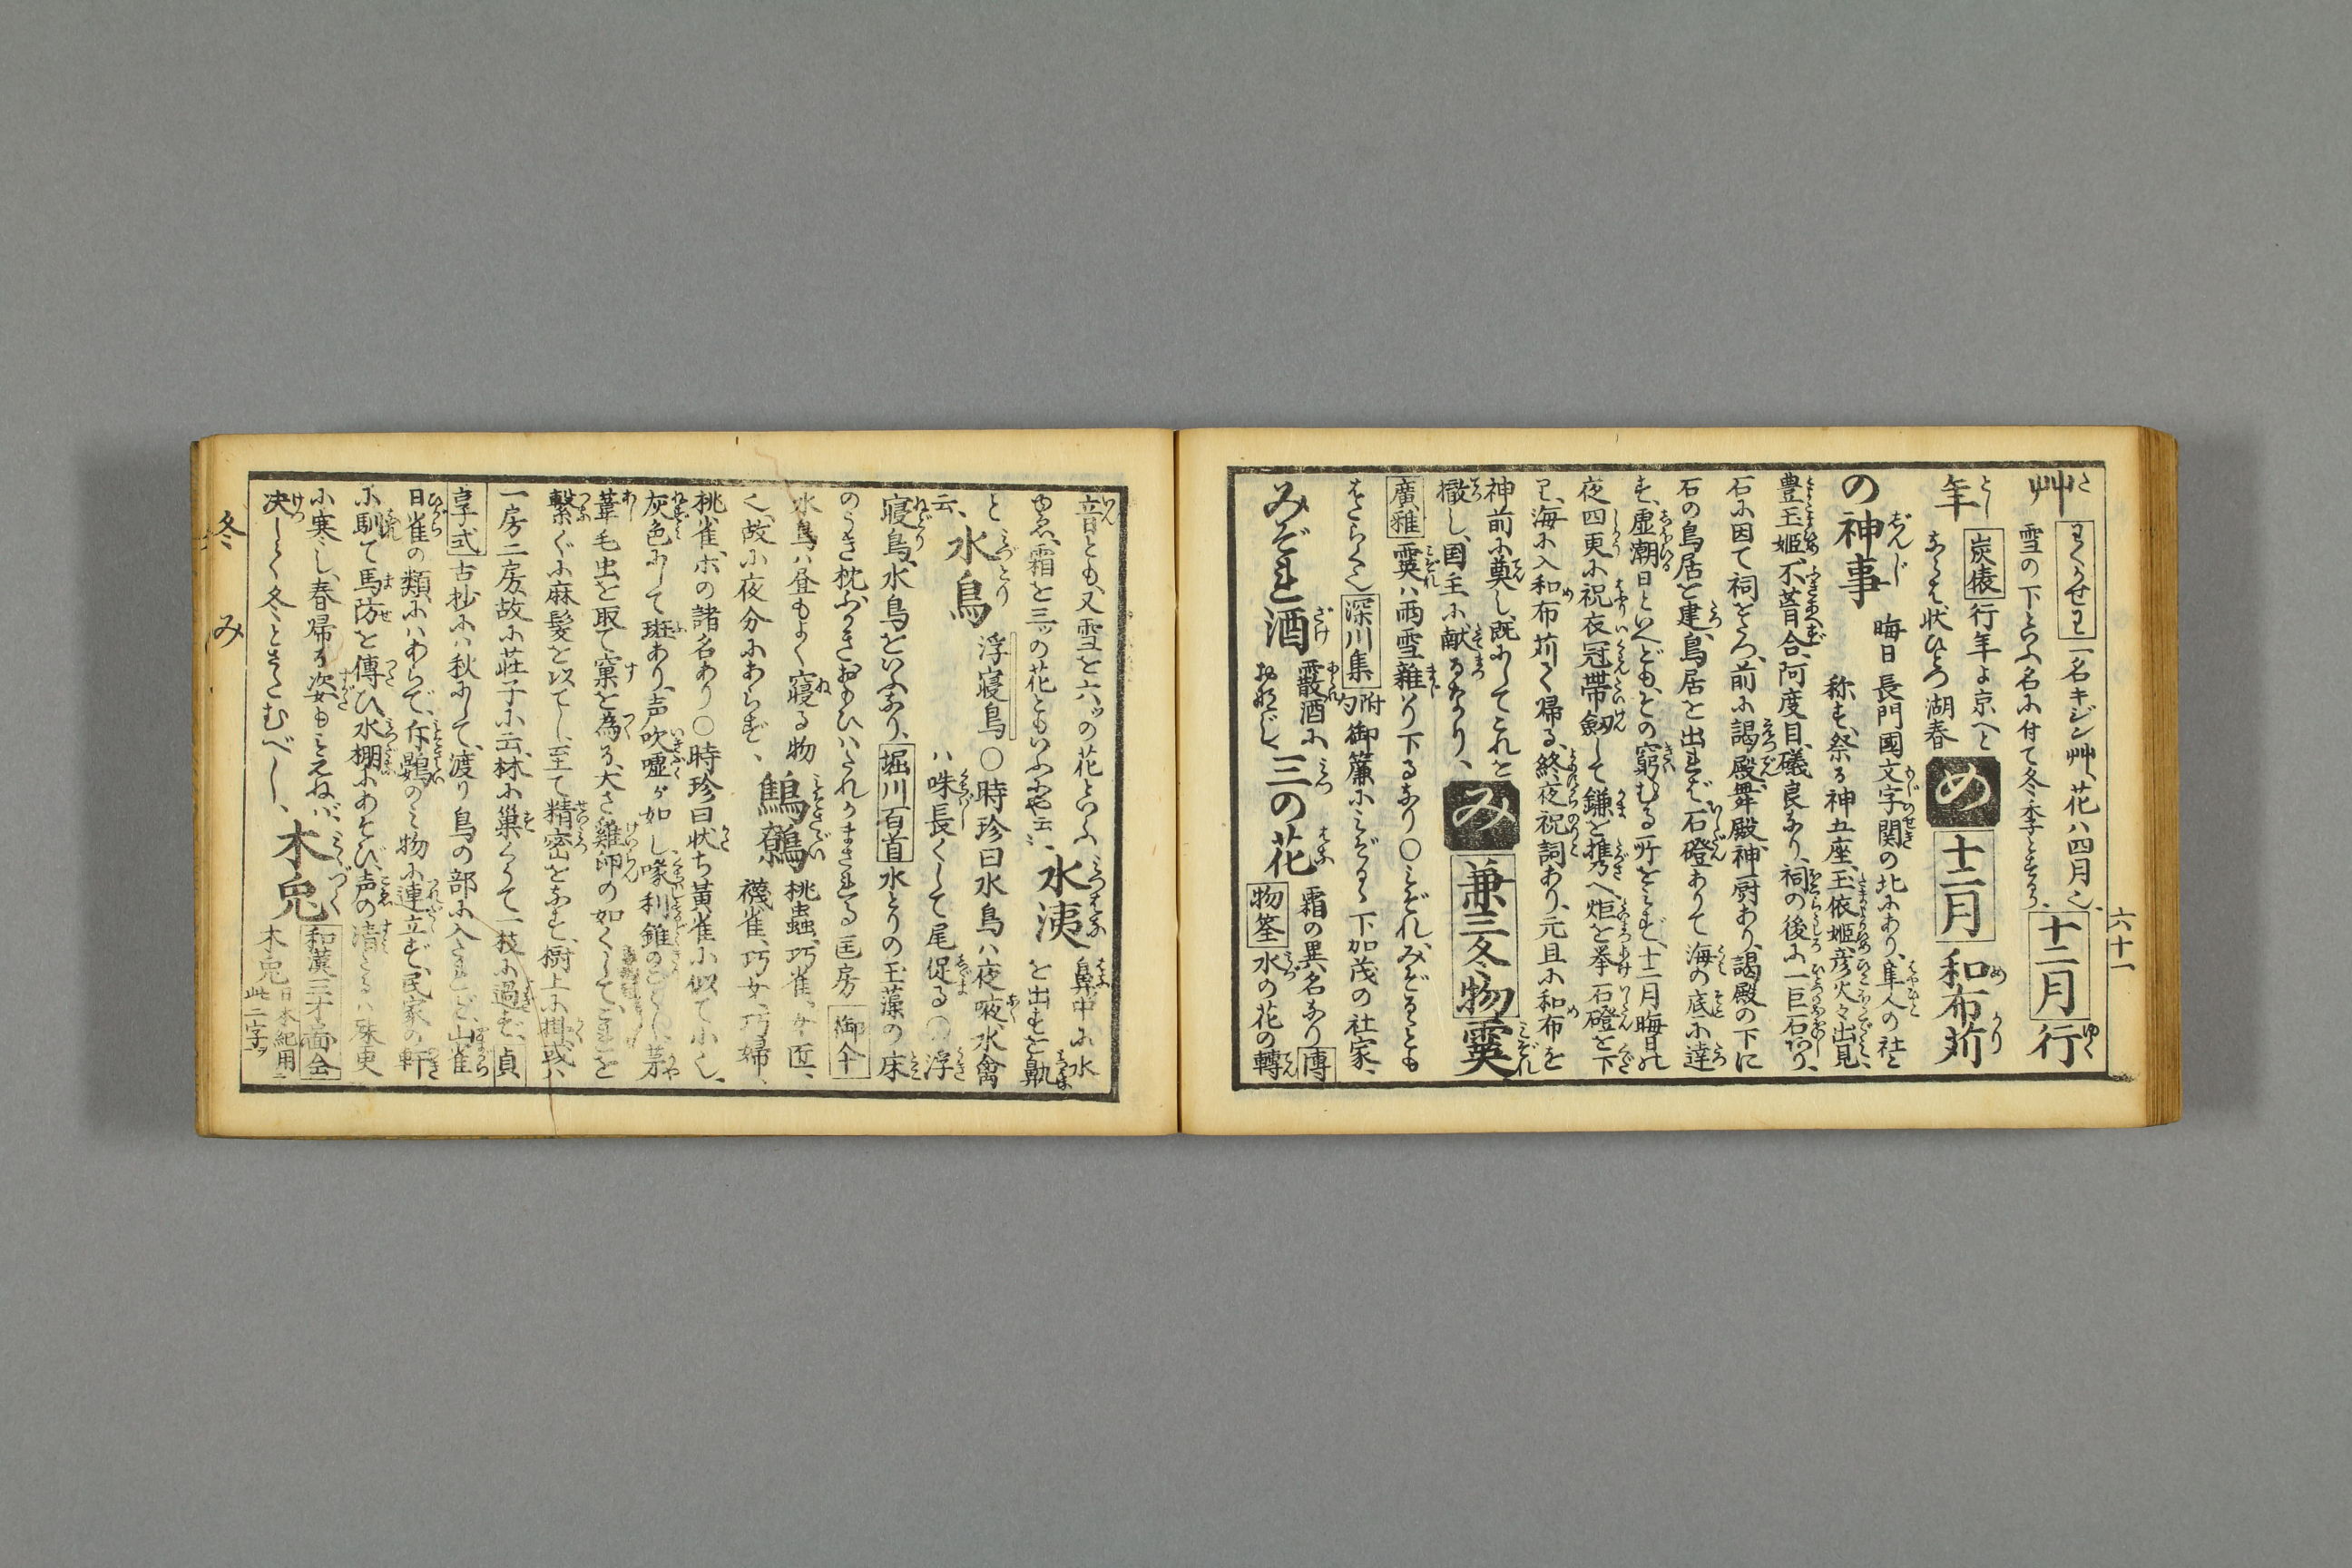 六十一
艸 一名キジン艸、花ハ四月也、
雪の下といふ名に付て冬季とする、十二月 行
年 炭俵 行年よ京へと
湖春 め 十二月 和布苅
の神事 晦日 長門國文字関の北にあり、隼人の社と
称す、祭る神五座、玉依姫、彦火々出見、
豊玉姫、不葺合、阿度目、礒良なり、祠の後に一巨石あり、
石に因て祠をたつ、前に謁殿、舞殿、神厨あり、謁殿の下に
石の鳥居を建、鳥居を出れば、石磴ありて海の底に達
す、虚潮日といへども、その窮むる所をみず、十二月晦日の
夜四更に祝衣冠帯剱して鎌を携へ炬を挙石磴を下
り、海に入和布苅て帰る、終夜祝詞あり、元且に和布を
神前に奠し、既にしてこれを
撤し、国主に献るなり、 み 兼三冬物 霙
廣雅 霙ハ雨雪雜りて下るなり〇みぞれ、みぞるとも
はたらく也 深川集 附句 御簾にみぞるゝ下加茂の社家、
みぞれ酒 霰酒に おなじ 三の花 霜の異名なり 傳
物筌 水の花の轉
音とも、又雪を六ッの花といふ
ゆゑ、霜を三ッの花ともいふにや云〻、水洟 鼻中に水
を出すを鼽
と云、水鳥 浮寝鳥 〇時珍曰水鳥ハ夜㕍、水禽
ハ咮長くして尾促る〇浮
寝鳥、水鳥をいふなり、堀川百首 水とりの玉藻の床
のうき枕ふかきおもひハたれかまされる 匡房 御傘
水鳥ハ昼もよく寝る物
く、故に夜分にあらず、鷦鷯 桃蟲、巧雀、女匠、
襪雀、巧女、巧婦、
桃雀、ホの諸名あり〇時珍曰状ち黄雀に似て小く、
灰色にして斑あり、声吹嘘が如し、喙利錐のごとし、茅
葦毛虫を取て窠を為る、大さ雞卵の如くして、これを
繋ぐに麻髪を以てし、至て精密をなす、樹上に掛或ハ
一房二房、故に荘子に云、林に巣くうて一枝に過ず、貞
享式 古抄にハ秋にして、渡り鳥の部に入されど、山雀
日雀の類にハあらで、斥鷃のミ物に連立ず、民家の軒
に馴て馬防を傳ひ、水棚にあそび、声の清たるハ殊更
に寒し、春帰る姿もミえねば、
决して冬とさだむべし、木兎 和漢三才圖会
木兎 日本紀用ニ此二字ヲ
冬 み